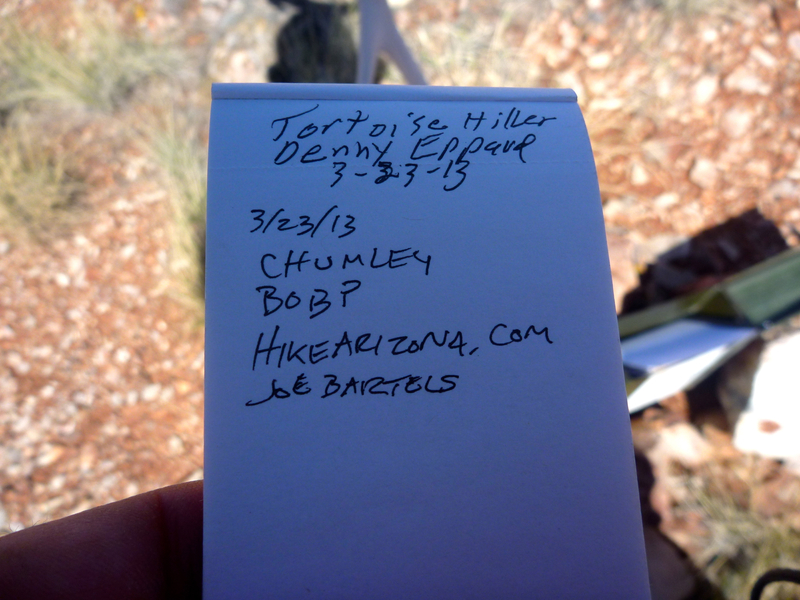 Tortoise Hiller
Denny Eppard
3-23-13
3/23/13
CHUMLEY
BOBP
HIKEARIZONA.COM
JOE BARTELS